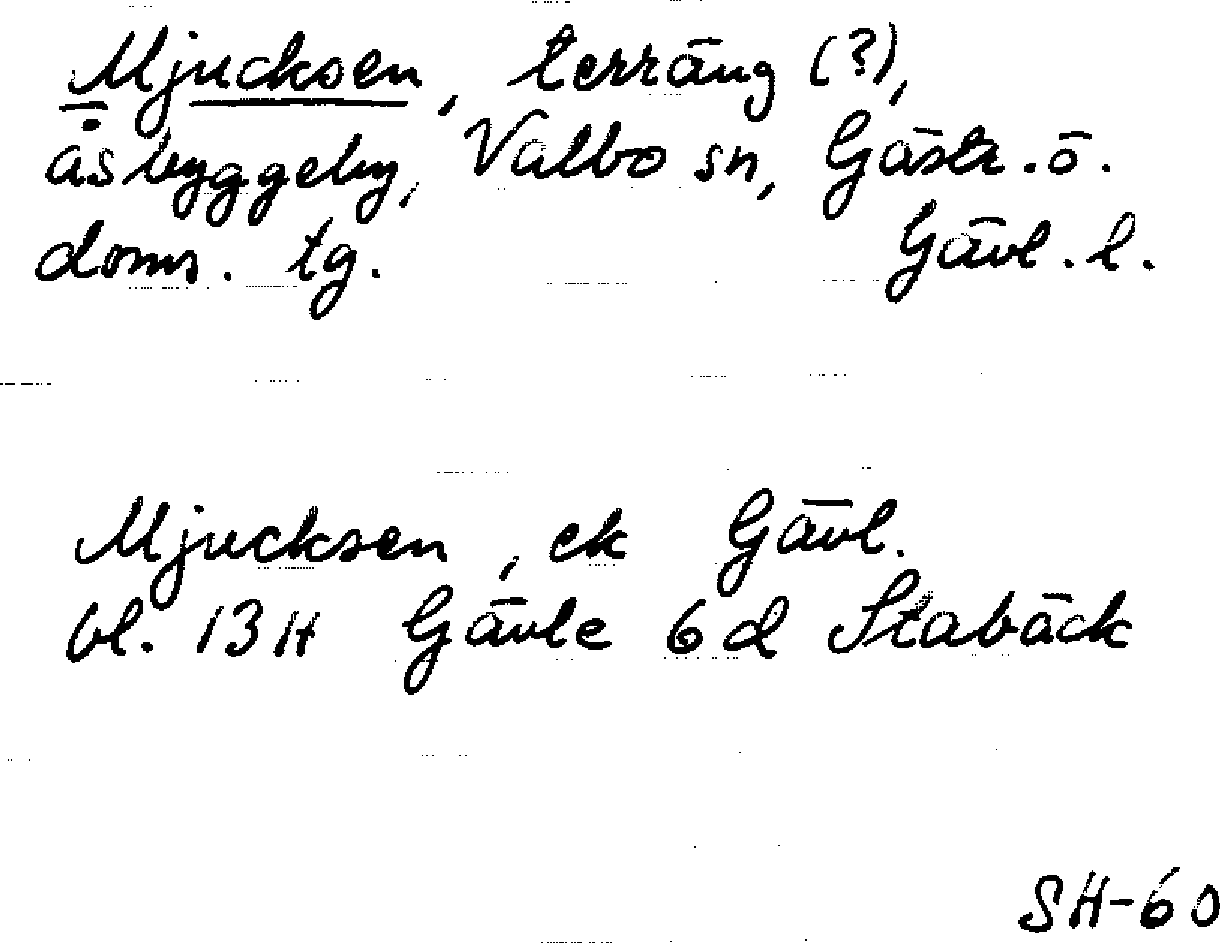 Mjucksen, terräng (?),
åsbyggeby, Valbo sn, Gästr. ö.
doms. tg. Gävl. l.
Mjucksen, ek Gävl.
bl. 13H Gävle 6d Stabäck
SH-60